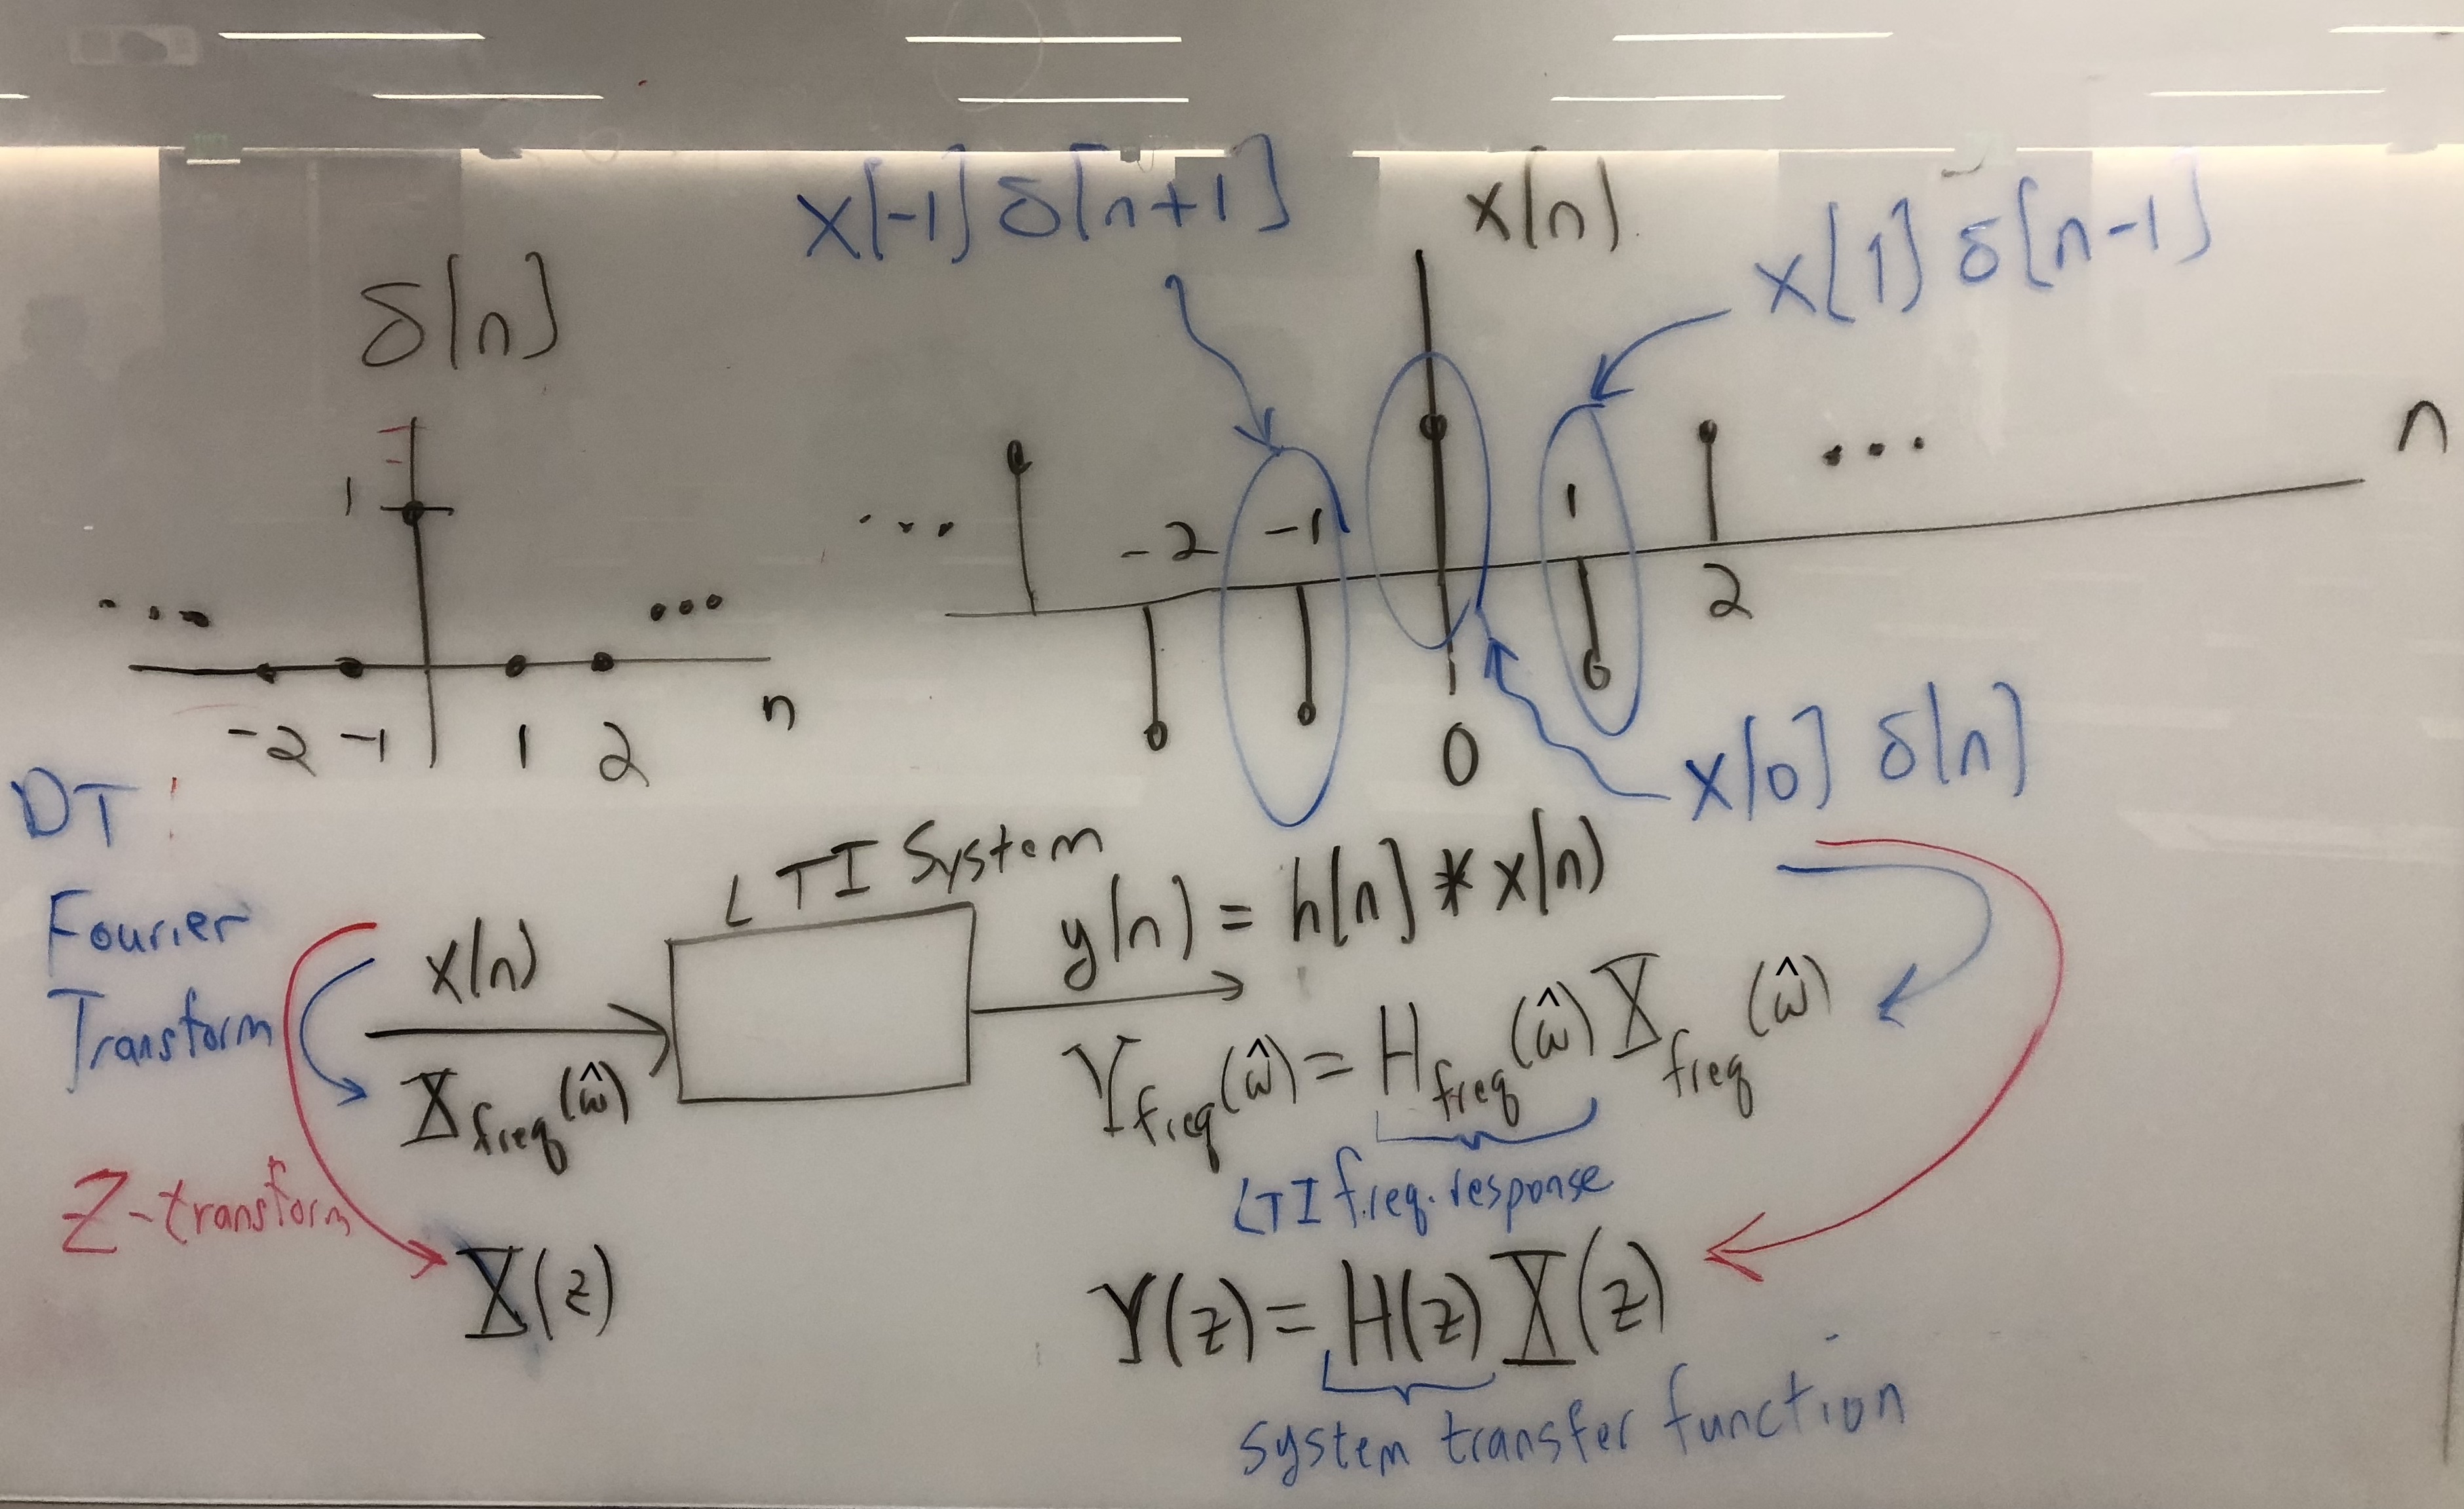 x[-1] δ[n+1]
x[n]
x[1] δ[n-1]
δ[n]
n
1
...
-2 -1 1
...
...
...
2
-2 -1 1 2 n
0
x[0] δ[n]
DT
Fourier
Transform
LTI System
x[n]
y[n] = h[n] * x[n]
X_freq(ω̂)
Y_freq(ω̂) = H_freq(ω̂) X_freq(ω̂)
LTI freq. response
Z-transform
X(z)
Y(z) = H(z) X(z)
system transfer function